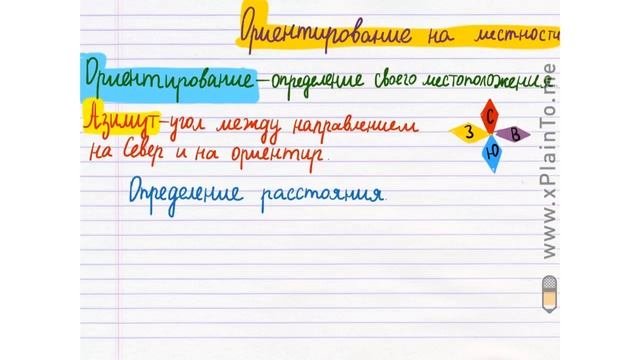 Ориентирование на местности
Ориентирование – определение своего местоположения
Азимут – угол между направлением
на Север и на ориентир.
С
З В
Ю
Определение расстояния.
www.xPlainTo.me